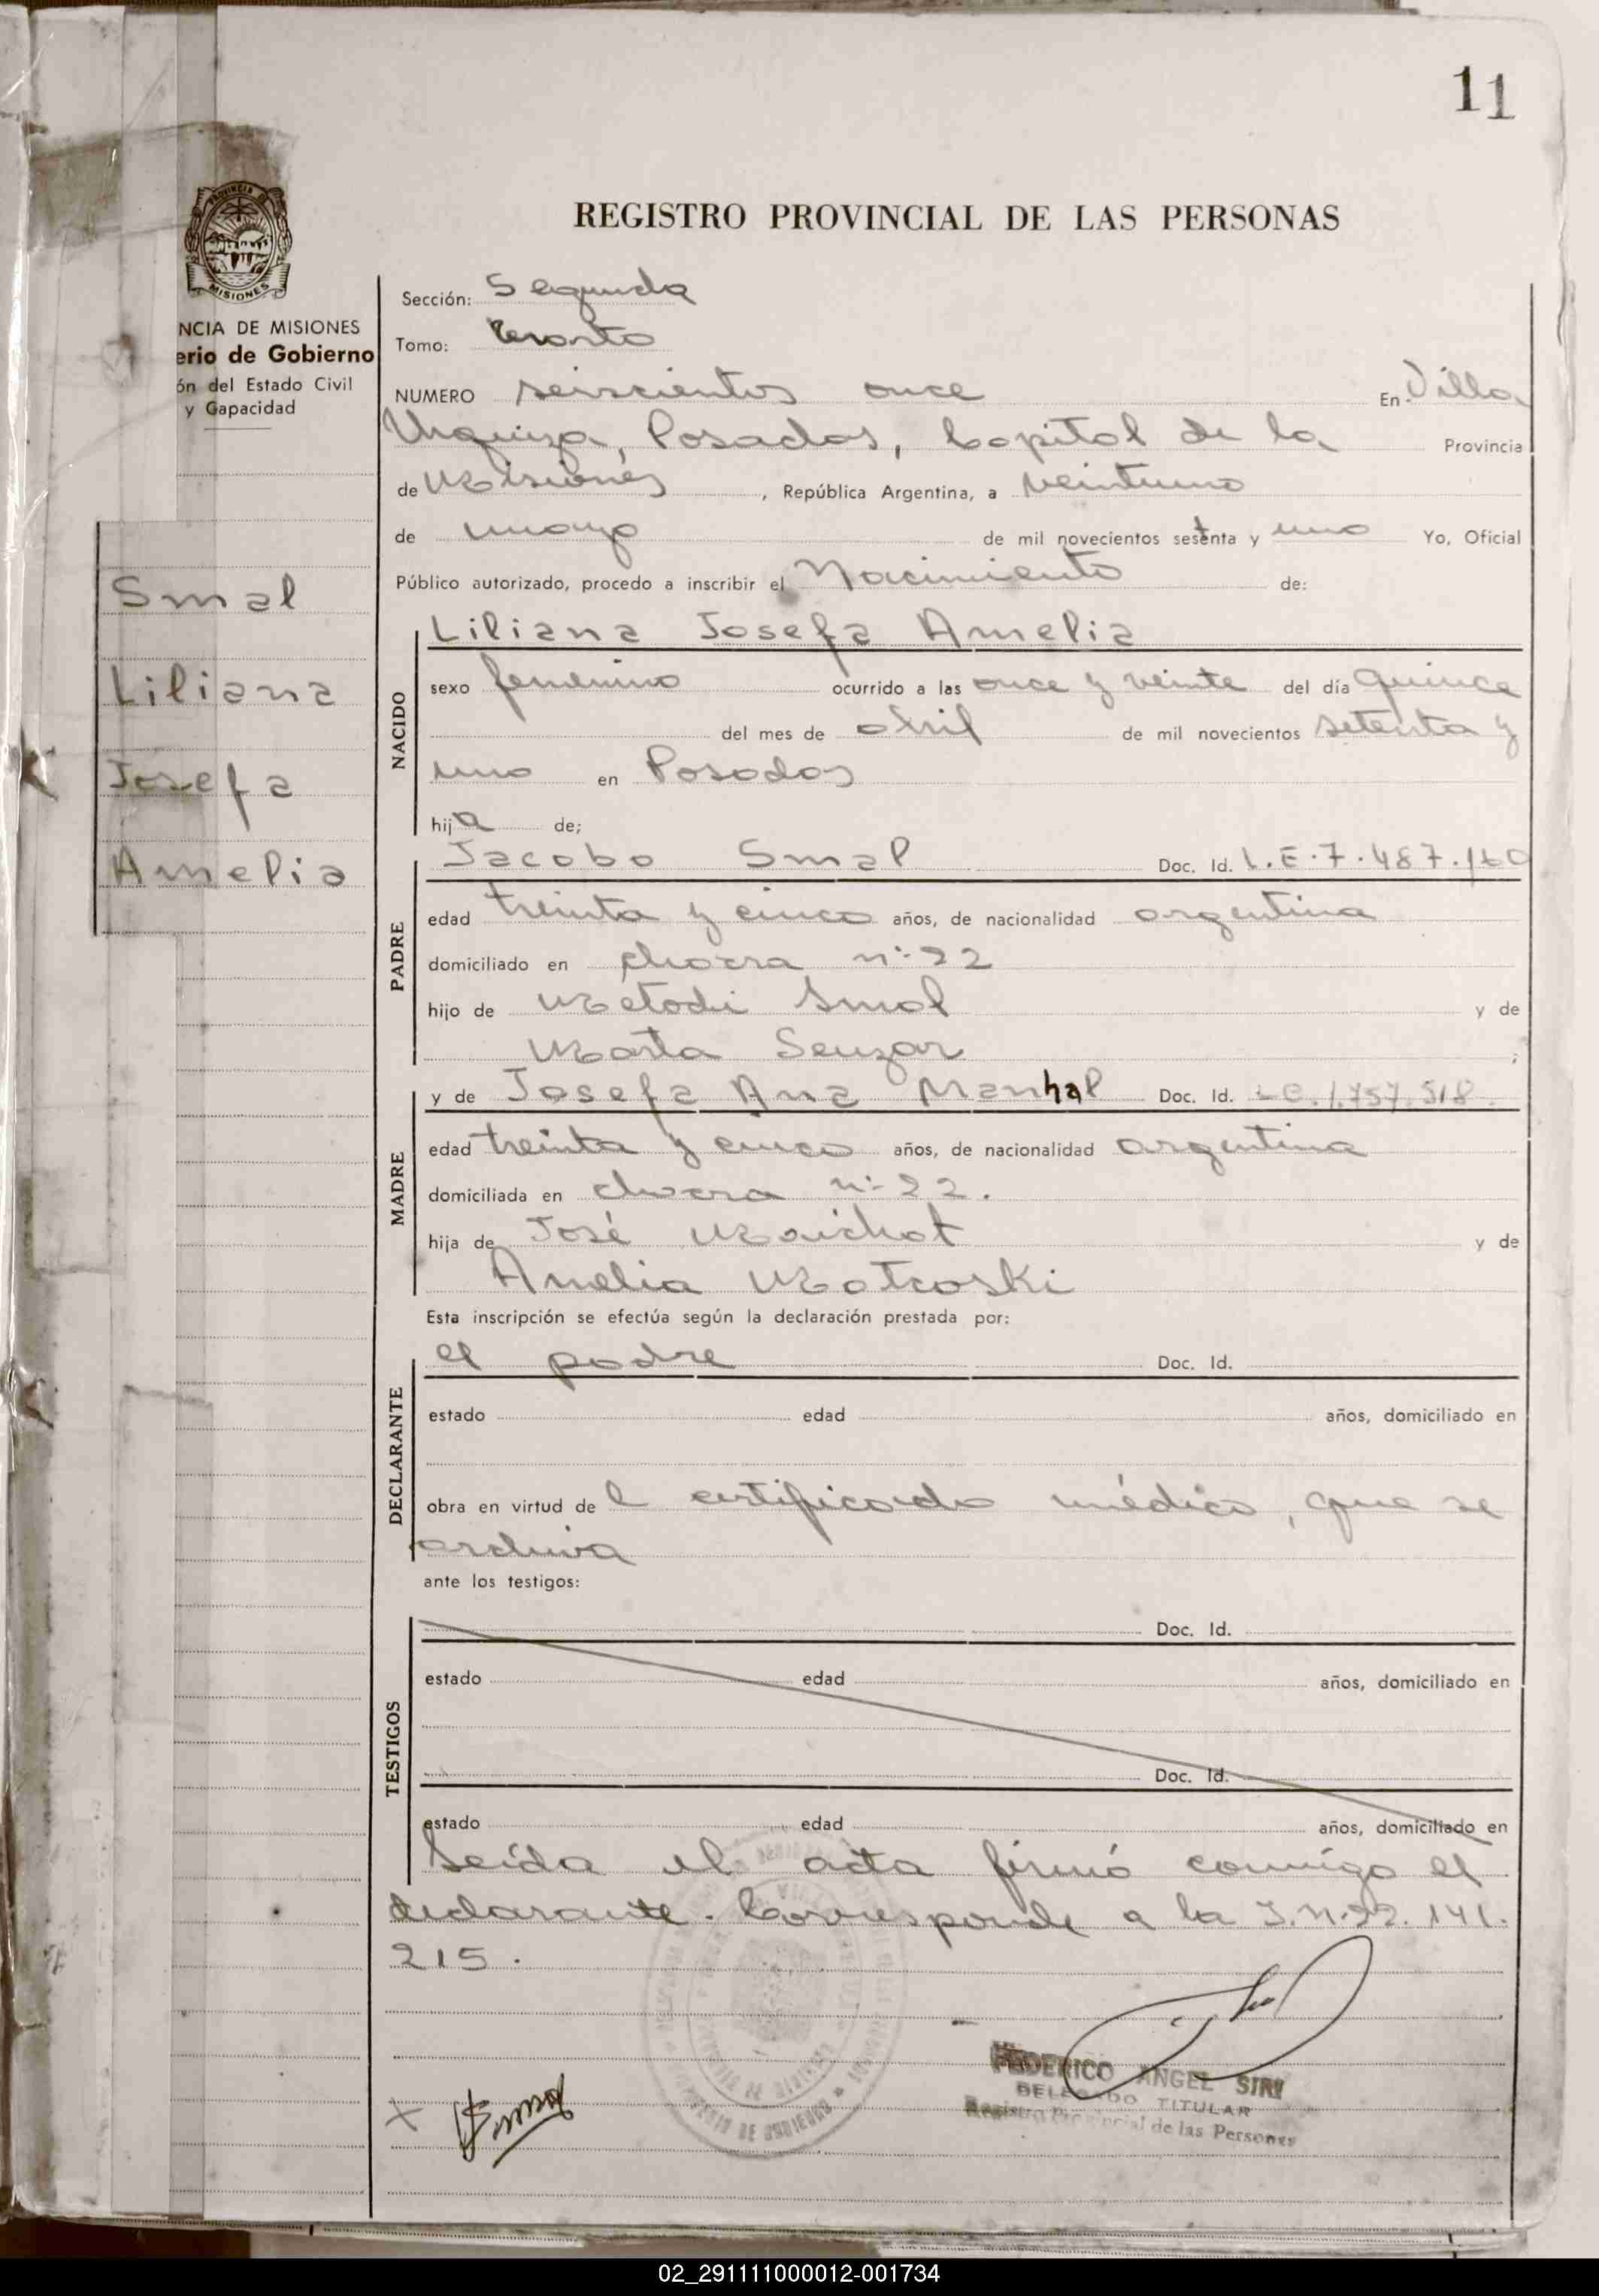 11
REGISTRO PROVINCIAL DE LAS PERSONAS
PROVINCIA DE
MISIONES
NCIA DE MISIONES
erio de Gobierno
ón del Estado Civil
y Capacidad
Smal
Liliana
Josefa
Amelia
Sección: Segunda
Tomo: Cuarto
NUMERO seiscientos once En Villa
Urquiza, Posadas, Capital de la Provincia
de Misiones, República Argentina, a veintiuno
de mayo de mil novecientos setenta y uno Yo, Oficial
Público autorizado, procedo a inscribir el Nacimiento de:
NACIDO
Liliana Josefa Amelia
sexo femenino ocurrido a las once y veinte del día quince
del mes de abril de mil novecientos setenta y
uno en Posadas
hija de;
PADRE
Jacobo Smal Doc. Id. L.E.7.487.160
edad treinta y cinco años, de nacionalidad argentina
domiciliado en chacra nº 22
hijo de Metodi Smal y de
Marta Seuzar ;
MADRE
y de Josefa Ana Manhal Doc. Id. L.C.1.757.518.
edad treinta y cinco años, de nacionalidad argentina
domiciliada en chacra nº 22.
hija de José Maichot y de
Amelia Matcoski
Esta inscripción se efectúa según la declaración prestada por:
DECLARANTE
el padre Doc. Id.
estado edad años, domiciliado en
obra en virtud de l certificado médico, que se
archiva
ante los testigos:
TESTIGOS
Doc. Id.
estado edad años, domiciliado en
Doc. Id.
estado edad años, domiciliado en
Leída el acta firmó conmigo el
declarante. Corresponde a la I.N.22.141.
215.
FEDERICO ANGEL SIRI
DELEGADO TITULAR
Registro Provincial de las Personas
X Smal
02_291111000012-001734